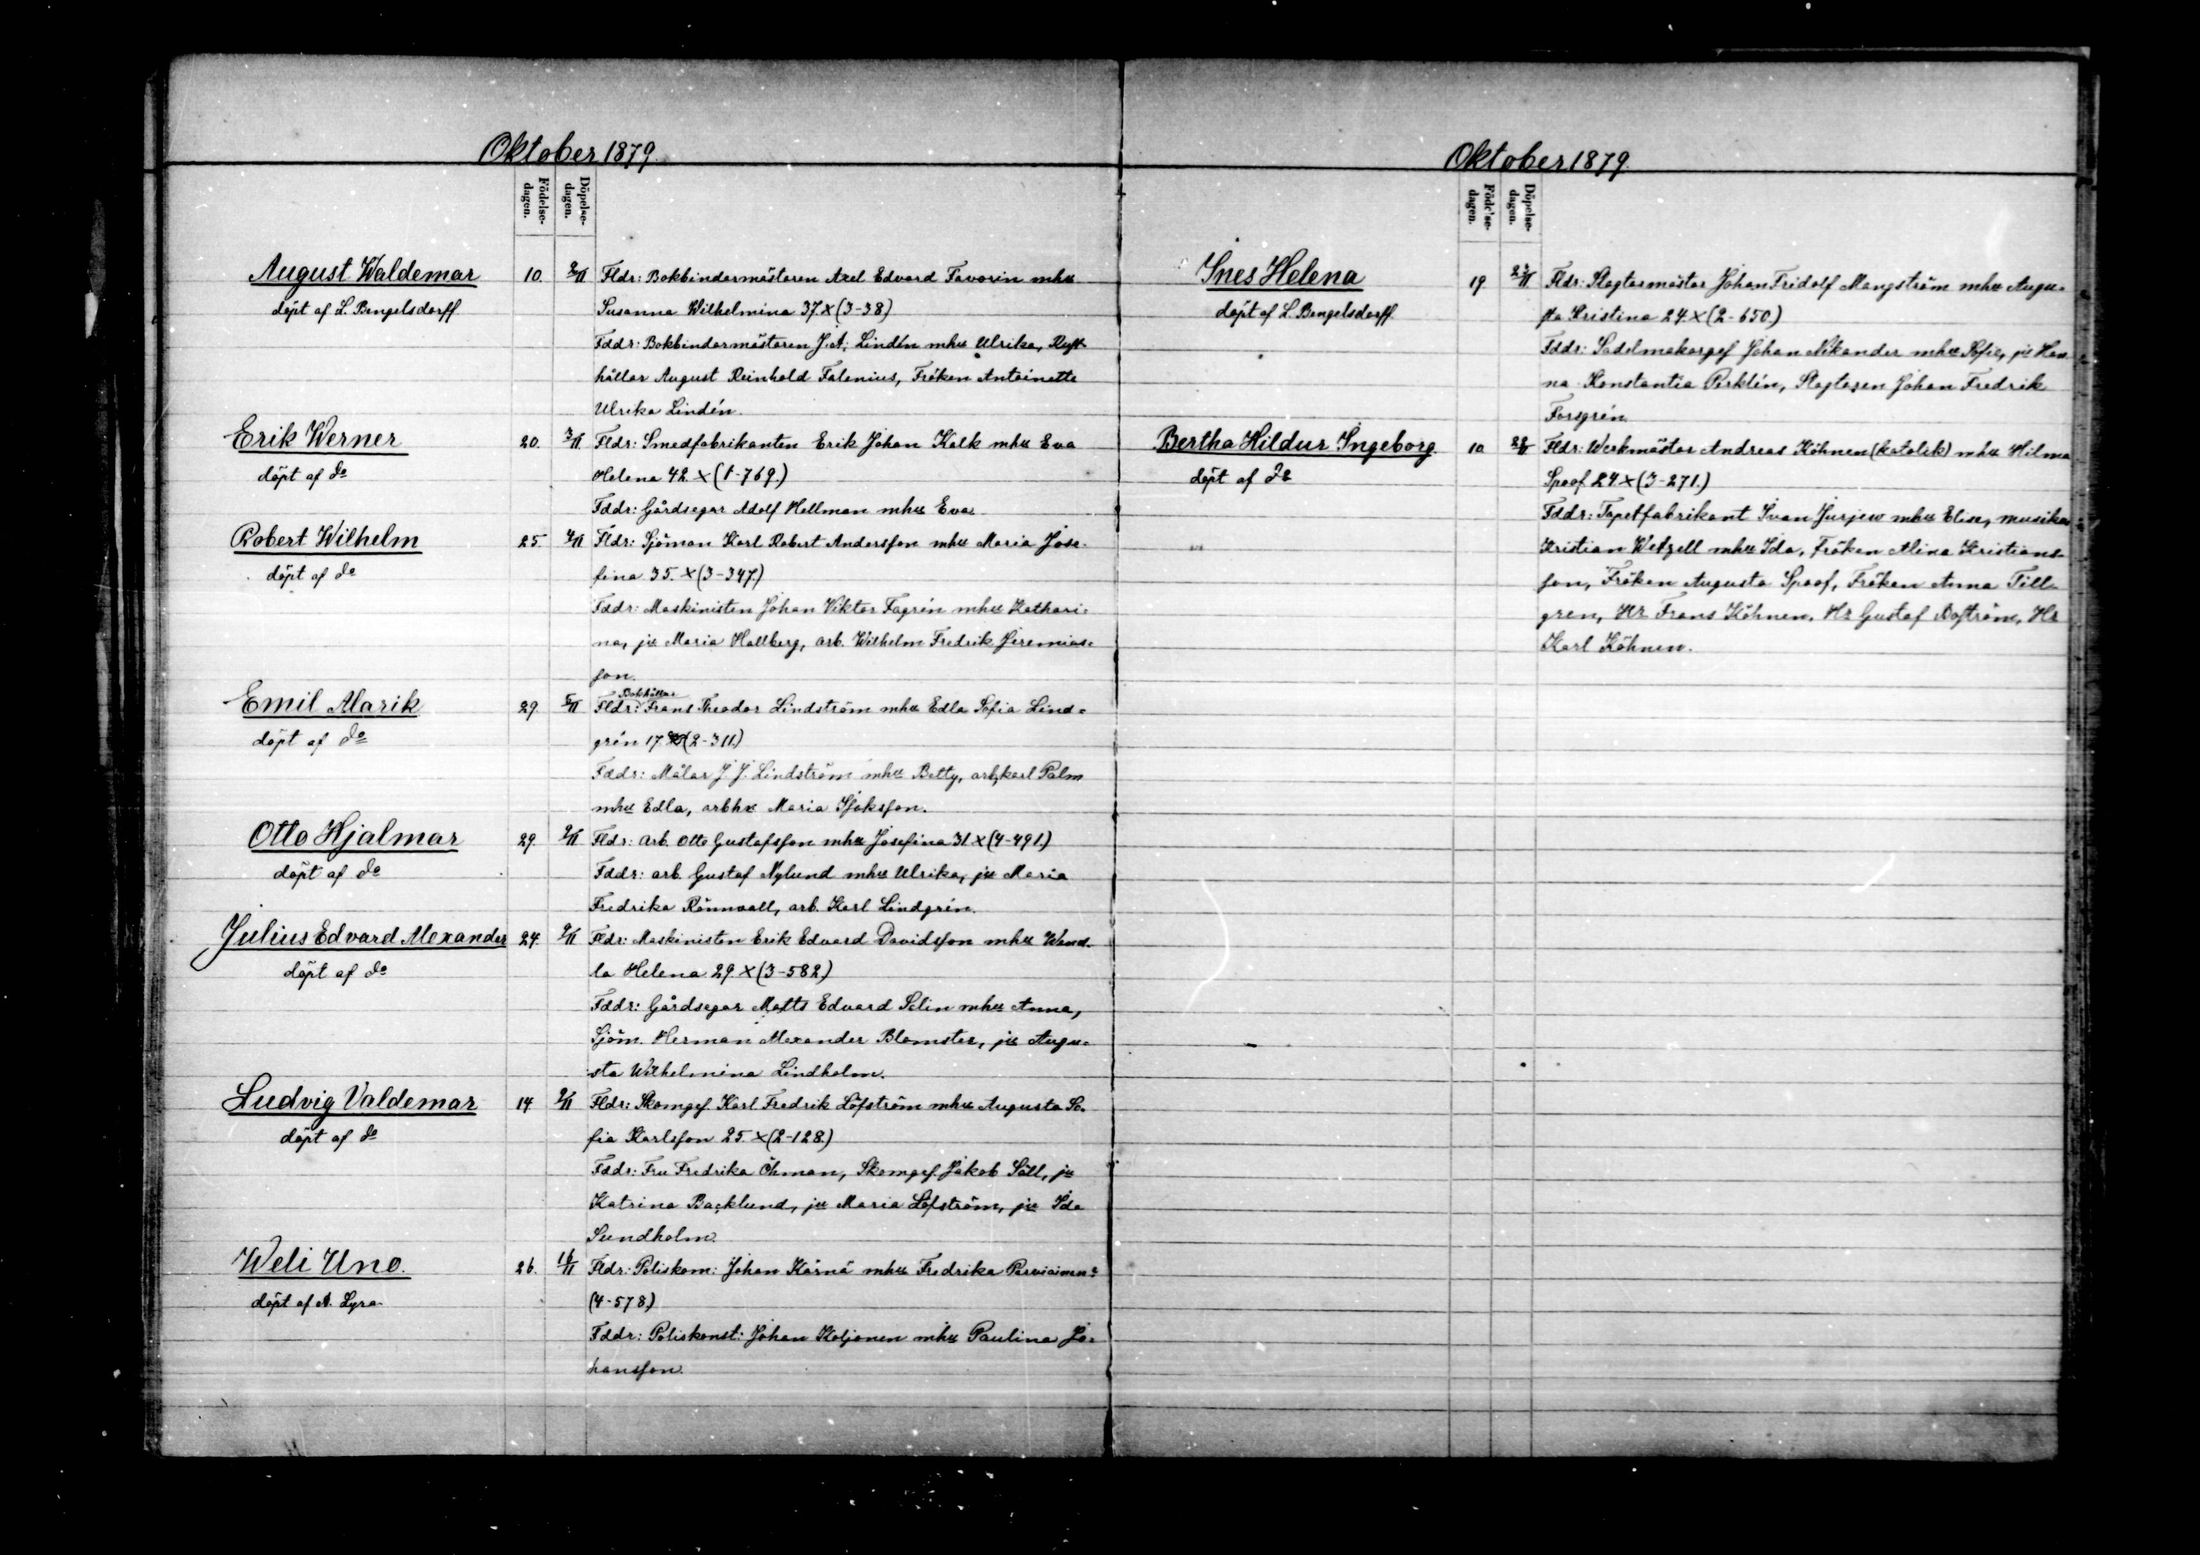 Oktober 1879.
Födelse-
dagen.
Döpelse-
dagen.
August Waldemar
döpt af L. Bengelsdorff
10. 2/11 Fldr: Bokbindarmästaren Axel Edvard Favorin mhu
Susanna Wilhelmina 37. x (3-38)
Fddr: Bokbindarmästaren J. A. Lindén mhu Ulrika, Rust-
hållar August Reinhold Falenius, Fröken Antoinette
Ulrika Lindén.
Erik Werner
döpt af do
20. 3/11 Fldr: Smedfabrikanten Erik Johan Kalk mhu Eva
Helena 42. x (1-769.)
Fddr: Gårdsegar Adolf Hellman mhu Eva
Robert Wilhelm
döpt af do
25. 4/11 Fldr: Sjöman Karl Robert Andersson mhu Maria Jose-
fina 35. x (3-347.)
Fddr: Maskinisten Johan Viktor Fagrén mhu Kathari-
na, ju Maria Hallberg, arb. Wilhelm Fredrik Jeremias-
son.
Emil Alarik
döpt af do
Bokhållar
29 5/11 Fldr: Frans Theodor Lindström mhu Edla Sofia Lind-
grén 17. (2-311.)
Fddr: Målar J. J. Lindström mhu Betty, arb. karl Palm
mhu Edla, arbhu Maria Isaksson.
Otto Hjalmar
döpt af do
29. 9/11 Fldr: arb. Otto Gustafsson mhu Josefina 31 x (4-491.)
Fddr: arb. Gustaf Nylund mhu Ulrika, ju Maria
Fredrika Rönnvall, arb. Karl Lindgrén.
Julius Edvard Alexander
döpt af do
24. 9/11 Fldr: Maskinisten Erik Edvard Davidsson mhu Wend-
la Helena 29. x (3-582)
Fddr: Gårdsegar Matts Edvard Selin mhu Anna,
Sjöm. Herman Alexander Blomster, ju Augu-
sta Wilhelmina Lindholm.
Ludvig Valdemar
döpt af do
14 9/11 Fldr: Skomges. Karl Fredrik Löfström mhu Augusta So-
fia Karlsson 25. x (2-128.)
Fddr: Fru Fredrika Öhman, Skomges. Jakob Säll, ju
Katrina Backlund, ju Maria Löfström, ju Ida
Sundholm.
Weli Uno.
döpt af A. Lyra
26. 16/11 Fldr: Poliskom: Johan Kärnä mhu Fredrika Parviainen
(4-578)
Fddr: Poliskonst: Johan Koljonen mhu Paulina Jo-
hansson.
Oktober 1879.
Födelse-
dagen.
Döpelse-
dagen.
Ines Helena
döpt af L. Bengelsdorff
19 23/11 Fldr: Slagtarmästar Johan Fridolf Mangström mhu Augu-
sta Kristina 24. x (2-650.)
Fddr: Sadelmakarges Johan Nikander mhu Sofie, ju Han-
na Konstantia Perklén, Slagtaren Johan Fredrik
Forsgrén
Bertha Hildur Ingeborg
döpt af do
10 Fldr: Werkmästar Andreas Köhnen (katolik) mhu Hilma
Spoof 24. x (3-271.)
Fddr: Tapetfabrikant Ivan Jurjew mhu Elise, musiker
Kristian Wetzell mhu Ida, Fröken Alina Kristians-
son, Fröken Augusta Spoof, Fröken Anna Till-
gren, Hr Frans Köhnen, Hr Gustaf Boström, Hr
Karl Köhnen.